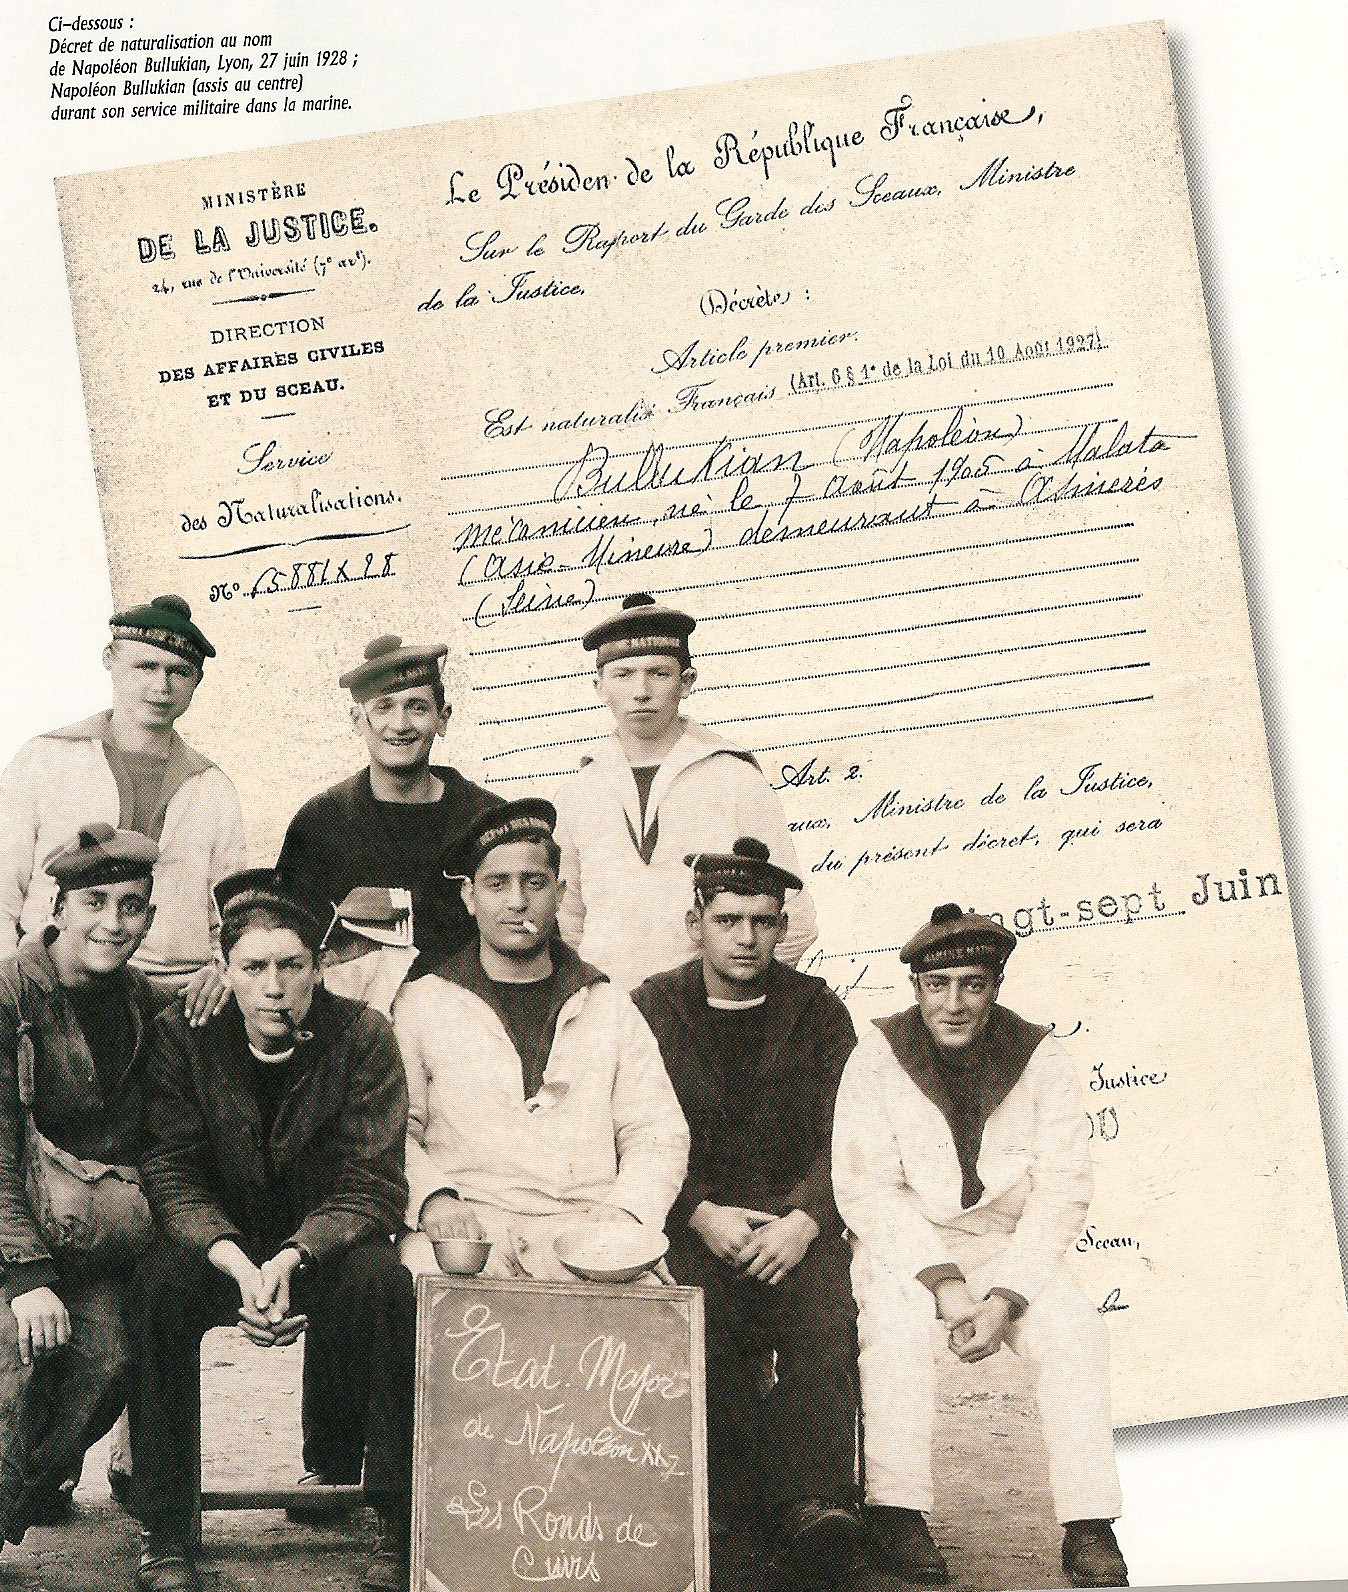 Ci-dessous :
Décret de naturalisation au nom
de Napoléon Bullukian, Lyon, 27 juin 1928 ;
Napoléon Bullukian (assis au centre)
durant son service militaire dans la marine.
MINISTÈRE
DE LA JUSTICE.
24, rue de l'Université (7e arr.).
DIRECTION
DES AFFAIRES CIVILES
ET DU SCEAU.
Service
des Naturalisations.
No 15881X28
Le Présiden de la République Française,
Sur le Rapport du Garde des Sceaux, Ministre
de la Justice,
Décrète :
Article premier.
Est naturalisé Français (Art. 6 § 1° de la Loi du 10 Août 1927)
Bullukian (Napoléon)
mécanicien, né le 7 Août 1905 à Malata
(Asie-Mineure) demeurant à Asnières
(Seine)
Art. 2.
aux, Ministre de la Justice,
du présent décret, qui sera
ingt-sept Juin
Justice
Sceau,
Etat. Major
de Napoléon XX7
Les Ronds de
Cuirs